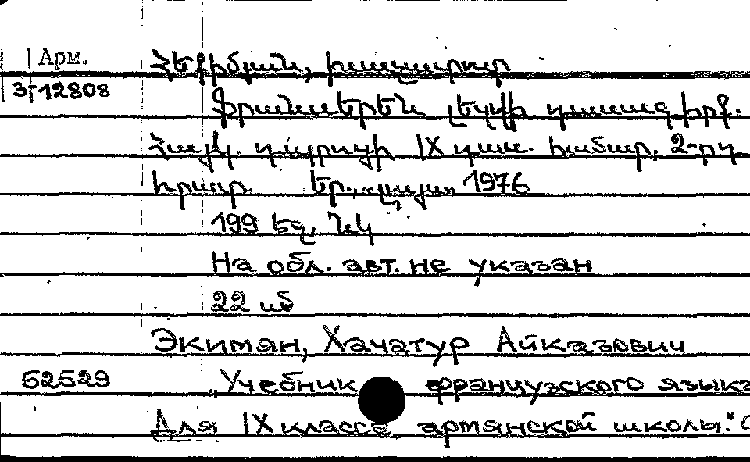 Арм. Հեքիմյան, Խաչատուր
3-12808
Ֆրանսերեն լեզվի դասագիրք.
Հայկ. դպրոցի IX դաս. համար. 2-րդ
հրատ. Եր., „Լույս„ 1976
199 եջ. նկ
На обл. авт. не указан
22 սմ
Экимян, Хачатур Айказович
52529 „Учебник французского языка
Для IX класса армянской школы."